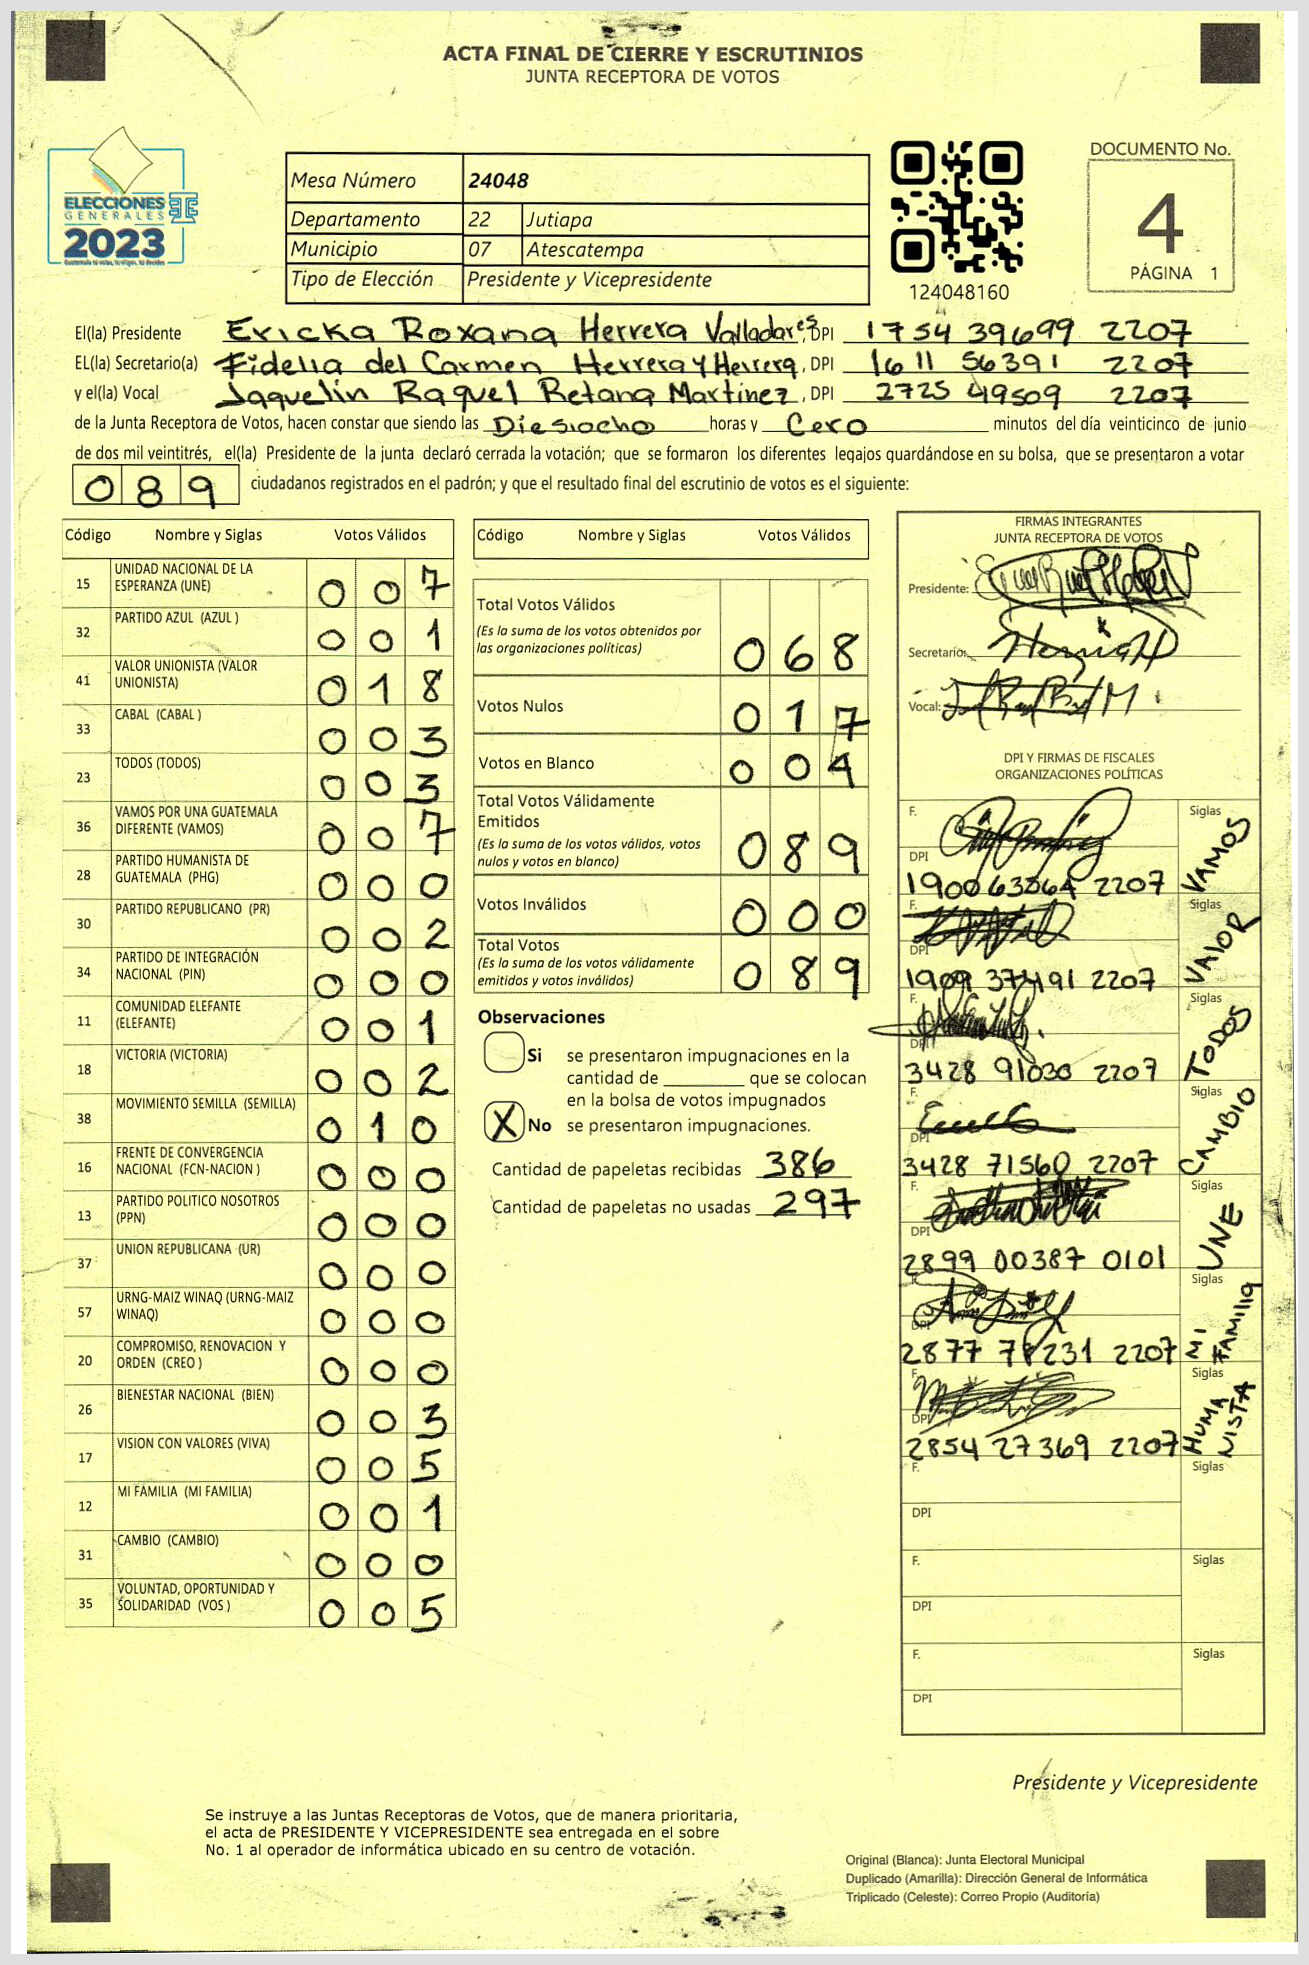 ACTA FINAL DE CIERRE Y ESCRUTINIOS
JUNTA RECEPTORA DE VOTOS
ELECCIONES
GENERALES
2023
Mesa Número 24048
Departamento 22 Jutiapa
Municipio 07 Atescatempa
Tipo de Elección Presidente y Vicepresidente
124048160
DOCUMENTO No.
4
PÁGINA 1
El(la) Presidente Ericka Roxana Herrera Valladares, DPI 1754 39699 2207
EL(la) Secretario(a) Fidelia del Carmen Herrera y Herrera, DPI 1611 56391 2207
y el(la) Vocal Jaquelin Raquel Retana Martinez, DPI 2725 49509 2207
de la Junta Receptora de Votos, hacen constar que siendo las Diesiocho horas y Cero minutos del día veinticinco de junio
de dos mil veintitrés, el(la) Presidente de la junta declaró cerrada la votación; que se formaron los diferentes legajos guardándose en su bolsa, que se presentaron a votar
089 ciudadanos registrados en el padrón; y que el resultado final del escrutinio de votos es el siguiente:
Código Nombre y Siglas Votos Válidos
15 UNIDAD NACIONAL DE LA ESPERANZA (UNE) 007
32 PARTIDO AZUL (AZUL ) 001
41 VALOR UNIONISTA (VALOR UNIONISTA) 018
33 CABAL (CABAL ) 003
23 TODOS (TODOS) 003
36 VAMOS POR UNA GUATEMALA DIFERENTE (VAMOS) 007
28 PARTIDO HUMANISTA DE GUATEMALA (PHG) 000
30 PARTIDO REPUBLICANO (PR) 002
34 PARTIDO DE INTEGRACIÓN NACIONAL (PIN) 000
11 COMUNIDAD ELEFANTE (ELEFANTE) 001
18 VICTORIA (VICTORIA) 002
38 MOVIMIENTO SEMILLA (SEMILLA) 010
16 FRENTE DE CONVERGENCIA NACIONAL (FCN-NACION ) 000
13 PARTIDO POLITICO NOSOTROS (PPN) 000
37 UNION REPUBLICANA (UR) 000
57 URNG-MAIZ WINAQ (URNG-MAIZ WINAQ) 000
20 COMPROMISO, RENOVACION Y ORDEN (CREO ) 000
26 BIENESTAR NACIONAL (BIEN) 003
17 VISION CON VALORES (VIVA) 005
12 MI FAMILIA (MI FAMILIA) 001
31 CAMBIO (CAMBIO) 000
35 VOLUNTAD, OPORTUNIDAD Y SOLIDARIDAD (VOS ) 005
Código Nombre y Siglas Votos Válidos
Total Votos Válidos
(Es la suma de los votos obtenidos por
las organizaciones políticas) 068
Votos Nulos 017
Votos en Blanco 004
Total Votos Válidamente
Emitidos
(Es la suma de los votos válidos, votos
nulos y votos en blanco) 089
Votos Inválidos 000
Total Votos
(Es la suma de los votos válidamente
emitidos y votos inválidos) 089
Observaciones
Si se presentaron impugnaciones en la
cantidad de ________ que se colocan
en la bolsa de votos impugnados
X No se presentaron impugnaciones.
Cantidad de papeletas recibidas 386
Cantidad de papeletas no usadas 297
FIRMAS INTEGRANTES
JUNTA RECEPTORA DE VOTOS
Presidente:
Secretario:
Vocal:
DPI Y FIRMAS DE FISCALES
ORGANIZACIONES POLÍTICAS
F. Siglas VAMOS
DPI 1900 63564 2207
F. Siglas VALOR
DPI 1909 37491 2207
F. Siglas TODOS
DPI 3428 91030 2207
F. Siglas CAMBIO
DPI 3428 71560 2207
F. Siglas UNE
DPI 2899 00387 0101
F. Siglas MI FAMILIA
DPI 2877 78231 2207
F. Siglas HUMANISTA
DPI 2854 27369 2207
F. Siglas
DPI
F. Siglas
DPI
F. Siglas
DPI
Presidente y Vicepresidente
Se instruye a las Juntas Receptoras de Votos, que de manera prioritaria,
el acta de PRESIDENTE Y VICEPRESIDENTE sea entregada en el sobre
No. 1 al operador de informática ubicado en su centro de votación.
Original (Blanca): Junta Electoral Municipal
Duplicado (Amarilla): Dirección General de Informática
Triplicado (Celeste): Correo Propio (Auditoría)